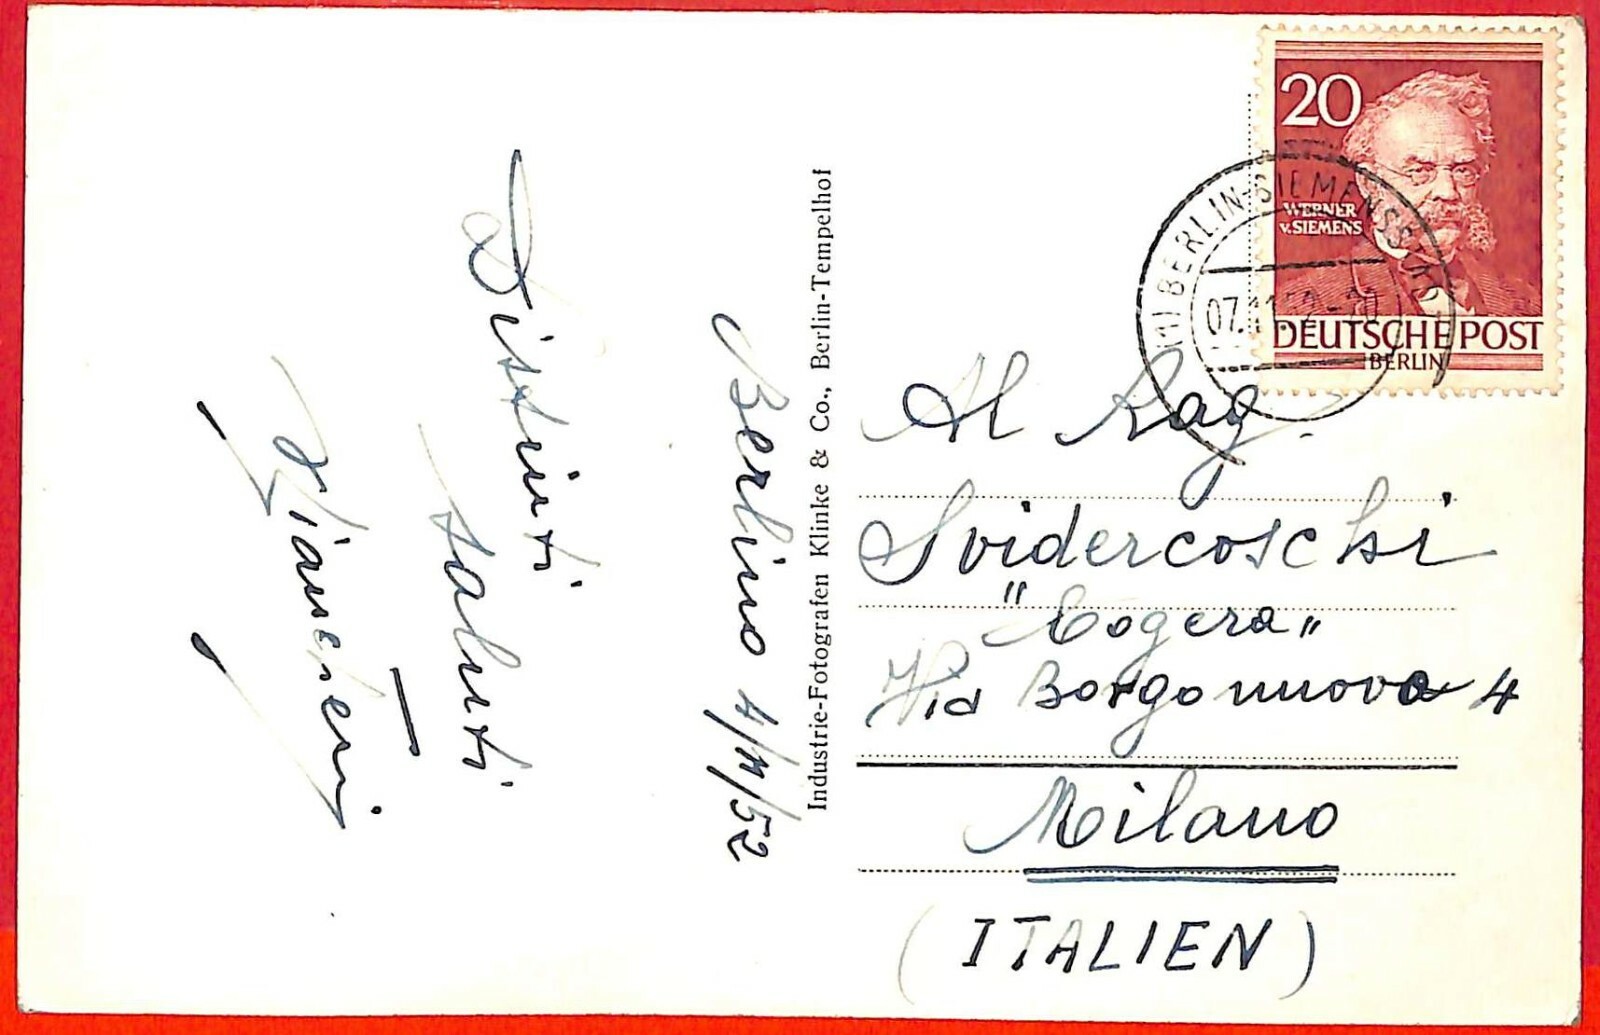 Berlino 4/11/52
Distinti
saluti
Industrie-Fotografen Klinke & Co., Berlin-Tempelhof
20
WERNER
v. SIEMENS
DEUTSCHE POST
BERLIN
BERLIN-SIEMENSSTADT
07.11.52-20
Al Rag.
Svidercoschi
"Cogera"
Via Borgonuovo 4
Milano
(ITALIEN)